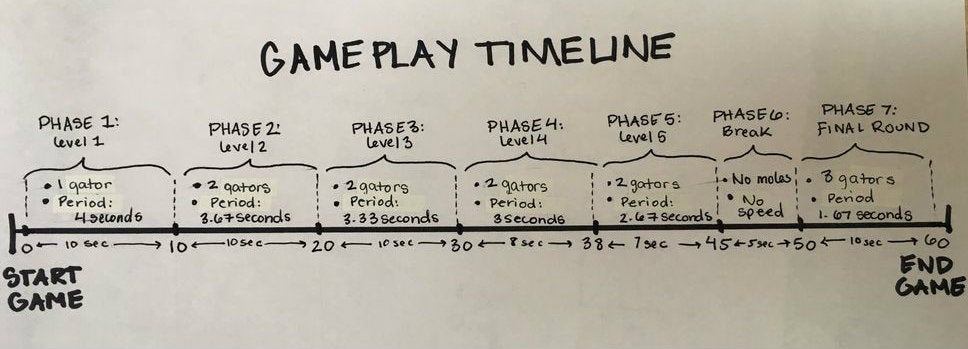 GAMEPLAY TIMELINE
PHASE 1:
Level 1
• 1 gator
• Period:
4 seconds
PHASE 2:
Level 2
• 2 gators
• Period:
3.67 seconds
PHASE 3:
Level 3
• 2 gators
• Period:
3.33 seconds
PHASE 4:
Level 4
• 2 gators
• Period:
3 seconds
PHASE 5:
Level 5
• 2 gators
• Period:
2.67 seconds
PHASE 6:
Break
• No moles
• No
speed
PHASE 7:
FINAL ROUND
• 3 gators
• Period
1.67 seconds
0 ← 10 sec → 10 ← 10 sec → 20 ← 10 sec → 30 ← 8 sec → 38 ← 7 sec → 45 ← 5 sec → 50 ← 10 sec → 60
START
GAME
END
GAME